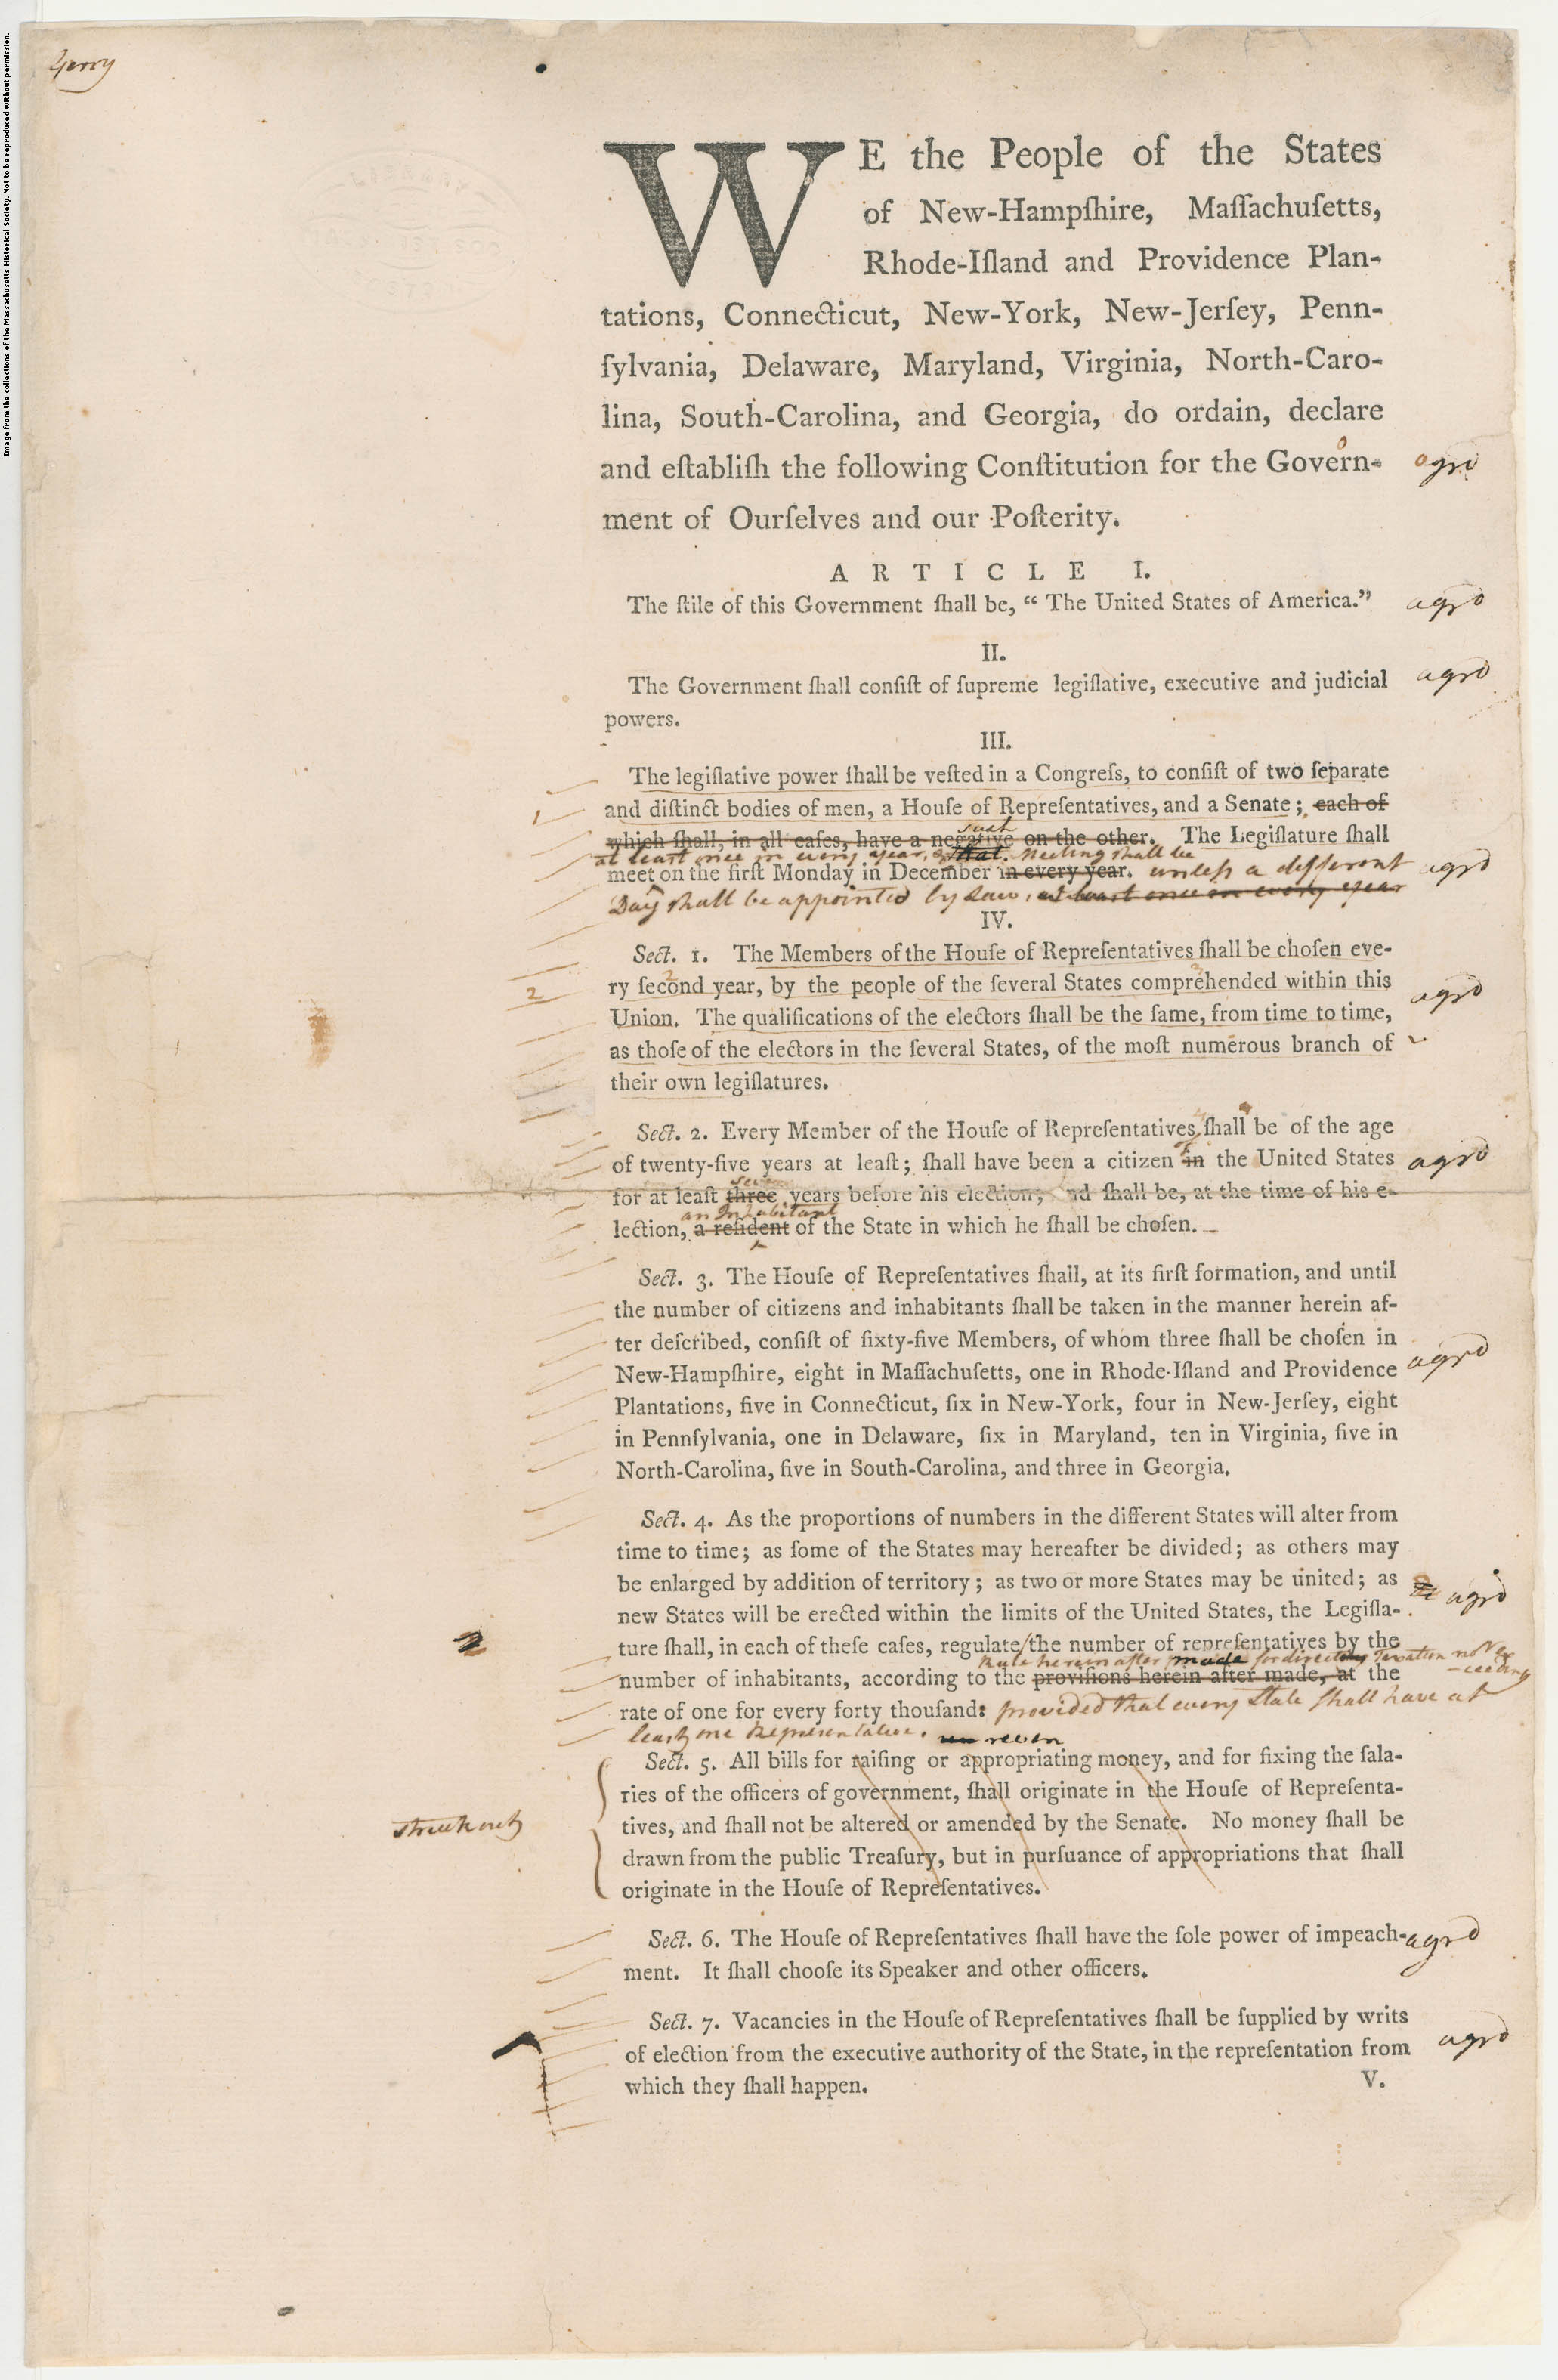 Image from the collections of the Massachusetts Historical Society. Not to be reproduced without permission.
Gerry
WE the People of the States
of New-Hampſhire, Maſſachuſetts,
Rhode-Iſland and Providence Plan-
tations, Connecticut, New-York, New-Jerſey, Penn-
ſylvania, Delaware, Maryland, Virginia, North-Caro-
lina, South-Carolina, and Georgia, do ordain, declare
and eſtabliſh the following Conſtitution for the Govern- agrd
ment of Ourſelves and our Poſterity.
ARTICLE I.
The ſtile of this Government ſhall be, “ The United States of America.” agrd
II.
The Government ſhall conſiſt of ſupreme legiſlative, executive and judicial agrd
powers.
III.
The legiſlative power ſhall be veſted in a Congreſs, to conſiſt of two ſeparate
1 and diſtinct bodies of men, a Houſe of Repreſentatives, and a Senate; each of
which ſhall, in all caſes, have a negative on the other. The Legiſlature ſhall
such
at least once in every year, & that Meeting shall be
meet on the firſt Monday in December in every year. unless a different agrd
Day shall be appointed by Law, at least once in every year
IV.
Sect. 1. The Members of the Houſe of Repreſentatives ſhall be choſen eve-
2 ry ſecond year, by the people of the ſeveral States comprehended within this agrd
Union. The qualifications of the electors ſhall be the ſame, from time to time,
as thoſe of the electors in the ſeveral States, of the moſt numerous branch of
their own legiſlatures.
Sect. 2. Every Member of the Houſe of Repreſentatives ſhall be of the age
of twenty-five years at leaſt; ſhall have been a citizen in the United States agrd
of
seven
for at leaſt three years before his election; and ſhall be, at the time of his e-
an Inhabitant
lection, a reſident of the State in which he ſhall be choſen.
Sect. 3. The Houſe of Repreſentatives ſhall, at its firſt formation, and until
the number of citizens and inhabitants ſhall be taken in the manner herein af-
ter deſcribed, conſiſt of ſixty-five Members, of whom three ſhall be choſen in
New-Hampſhire, eight in Maſſachuſetts, one in Rhode-Iſland and Providence agrd
Plantations, five in Connecticut, ſix in New-York, four in New-Jerſey, eight
in Pennſylvania, one in Delaware, ſix in Maryland, ten in Virginia, five in
North-Carolina, five in South-Carolina, and three in Georgia.
Sect. 4. As the proportions of numbers in the different States will alter from
time to time; as ſome of the States may hereafter be divided; as others may
be enlarged by addition of territory; as two or more States may be united; as agrd
new States will be erected within the limits of the United States, the Legiſla-
2 ture ſhall, in each of theſe caſes, regulate the number of repreſentatives by the
Rule herein after made for direct Taxation not ex
-ceeding
number of inhabitants, according to the proviſions herein after made, at the
rate of one for every forty thouſand: provided that every State shall have at
least one Representative.
Sect. 5. All bills for raiſing or appropriating money, and for fixing the ſala-
ries of the officers of government, ſhall originate in the Houſe of Repreſenta-
struck out tives, and ſhall not be altered or amended by the Senate. No money ſhall be
drawn from the public Treaſury, but in purſuance of appropriations that ſhall
originate in the Houſe of Repreſentatives.
Sect. 6. The Houſe of Repreſentatives ſhall have the ſole power of impeach- agrd
ment. It ſhall chooſe its Speaker and other officers.
Sect. 7. Vacancies in the Houſe of Repreſentatives ſhall be ſupplied by writs
of election from the executive authority of the State, in the repreſentation from agrd
which they ſhall happen.
V.